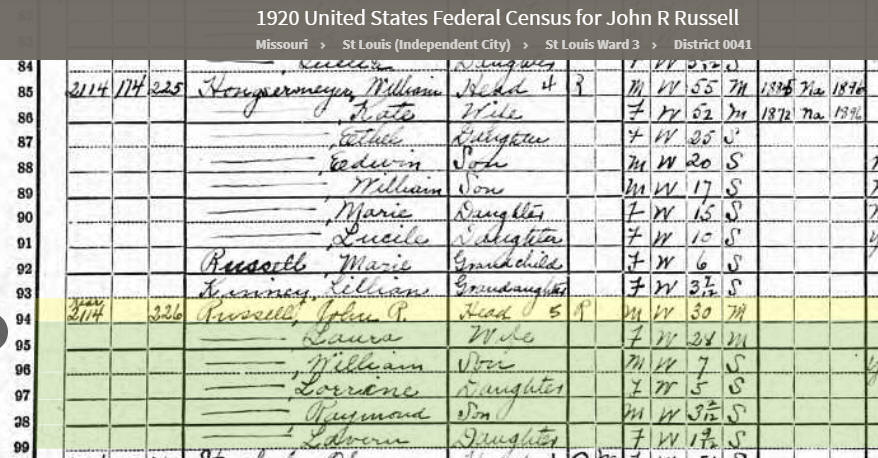 1920 United States Federal Census for John R Russell
Missouri > St Louis (Independent City) > St Louis Ward 3 > District 0041
84 Daughter F W S
85 2114 174 225 William Head 4 R M W 55 M 1885 Na 1896
86 Kate Wife F W 52 M 1872 Na 1896
87 Ethel Daughter F W 25 S
88 Edwin Son M W 20 S
89 William Son M W 17 S
90 Marie Daughter F W 15 S
91 Lucile Daughter F W 10 S
92 Russell, Marie Grandchild F W 6 S
93 Kinney, Lillian Grandaughter F W S
94 Rear 2114 226 Russell, John R. Head 5 R M W 30 M
95 Laura Wife F W 28 M
96 William Son M W 7 S
97 Lorraine Daughter F W 5 S
98 Raymond Son M W S
99 Lavern Daughter F W S